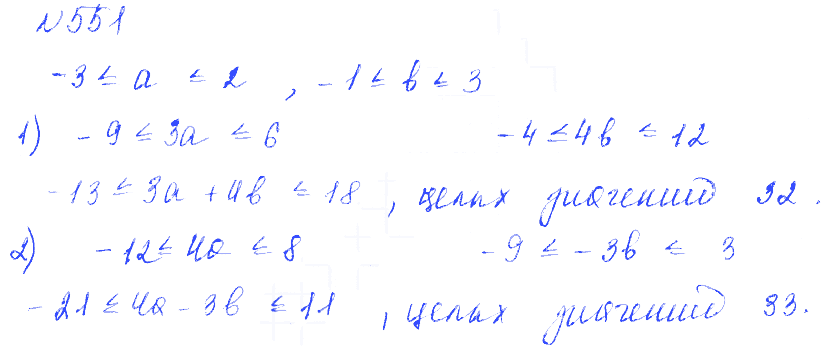 N551
-3 ≤ a ≤ 2 , -1 ≤ b ≤ 3
1) -9 ≤ 3a ≤ 6 -4 ≤ 4b ≤ 12
-13 ≤ 3a + 4b ≤ 18 , целых значений 32.
2) -12 ≤ 4a ≤ 8 -9 ≤ -3b ≤ 3
-21 ≤ 4a - 3b ≤ 11 , целых значений 33.